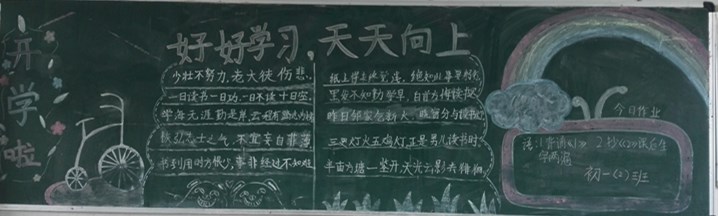 开学啦
好好学习，天天向上
少壮不努力，老大徒伤悲。
一日读书一日功，一日不读十日空。
学海无涯勤是岸，云
士之气，不宜妄自菲薄
书到用时方恨少，事非经过不知难
纸上得来终觉浅，绝知此事要躬行
黑发不知勤学早，白首方悔读书迟
昨日邻家乞新火，晓窗分与读书灯
三更灯火五更鸡，正是男儿读书时
半亩方塘一鉴开，天光云影共徘徊
今日作业
初一（2）班